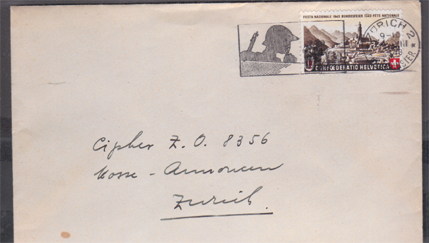 FESTA NAZIONALE 1943 BUNDESFEIER 1943 FÊTE NATIONALE
CONFOEDERATIO HELVETICA
ZÜRICH 2
Cipher Z.O. 8356
Mosse - Annoncen
Zürich.